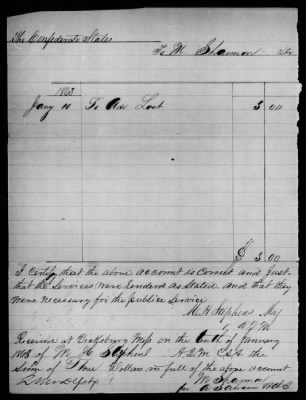 The Confederate States
To M. Shannon Dr
1863
Jany 10 To Adv Lost 3 00
$ 3.00
I Certify that the above account is Correct and just
that the Services were rendered as Stated and that they
were necessary for the publice Service
Maj
Received at Vicksburg Miss on the tenth of January
1863 of M. H. AQM CSA the
Sum of Three Dollars in full of the above account
M Shannon
for